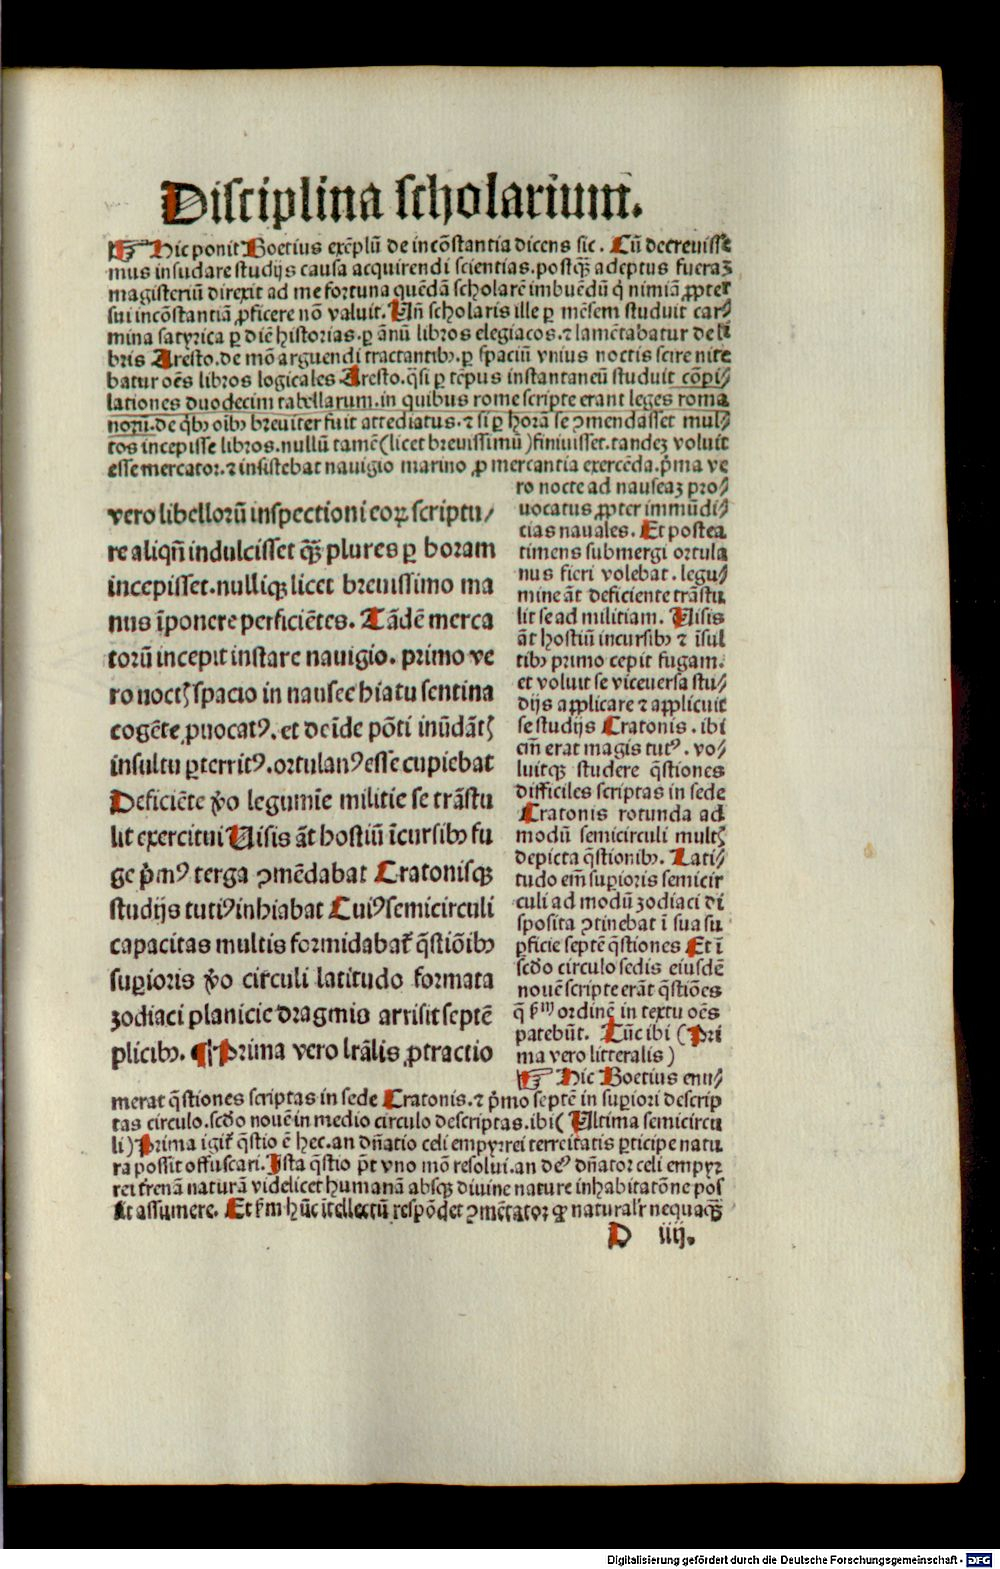 Disciplina scholarium.
☞ Hic ponit Boetius exēplū de incōstantia dicens sic. Cū decreuisse
mus insudare studijs causa acquirendi scientias. postqꝫ adeptus fueraꝫ
magisteriū direxit ad me fortuna quēdā scholarē imbuēdū q̇ nimiā ꝓpter
sui incōstantiā ꝓficere nō valuit. Vn̄ scholaris ille ꝑ mēsem studuit car⸗
mina satyrica ꝑ diē historias. ꝑ ānū libros elegiacos. ⁊ lamētabatur de li
bris Aresto. de mō arguendi tractantibꝰ. ꝑ spaciū vnius noctis scire nite
batur oēs libros logicales Aresto. q̄si ꝑ tēpus instantaneū studuit cōpi⸗
lationes duodecim tabellarum. in quibus rome scripte erant leges roma
noꝝ. de q̇bꝰ oībꝰ breuiter fuit attediatus. ⁊ si ꝑ horā se ꝯmendasset mul⸗
tos incepisse libros. nullū tamē (licet breuissimū) finiuisset. tandeꝫ voluit
esse mercator. ⁊ insistebat nauigio marino ꝓ mercantia exercēda. p̄ma ve
ro nocte ad nauseaꝫ pro⸗
uocatus ꝓpter immūdi⸗
cias nauales. Et postea
timens submergi ortula
nus fieri volebat. legu⸗
mine āt deficiente trāstu
lit se ad militiam. Visis
āt hostiū incursibꝰ ⁊ īsul
tibꝰ primo cepit fugam.
et voluit se viceuersa stu⸗
dijs applicare ⁊ applicuit
se studijs Cratonis. ibi
em̄ erat magis tutꝰ. vo⸗
luitqꝫ studere q̄stiones
difficiles scriptas in sede
Cratonis rotunda ad
modū semicirculi multꝭ
depicta q̄stionibꝰ. Lati⸗
tudo em̄ suꝑioris semicir
culi ad modū zodiaci di
sposita ꝯtinebat ī sua su
ꝑficie septē q̄stiones Et ī
scd̄o circulo sedis eiusdē
nouē scripte erāt q̄stiōes
q̄ ẜm ordinē in textu oēs
patebūt. Tūc ibi (Pri
ma vero litteralis)
vero libelloꝝ inspectioni eoꝝ scriptu/
re aliqn̄ indulcisset qꝫ plures ꝑ horam
incepisset. nulliqꝫ licet breuissimo ma
nus īponere perficiētes. Tādē merca
torū incepit instare nauigio. primo ve
ro noctꝭ spacio in nausee hiatu sentina
cogēte ꝓuocatꝰ. et deīde pōti inūdātꝭ
insultu ꝑterritꝰ. ortulanꝰ esse cupiebat
Deficiēte v̊o legumīe militie se trāstu
lit exercitui Visis āt hostiū īcursibꝰ fu
ge p̄mꝰ terga ꝯmēdabat Cratonisqꝫ
studijs tutiꝰ inhiabat Cuiꝰ semicirculi
capacitas multis formidabat̄ q̄stiōibꝰ
suꝑioris v̊o circuli latitudo formata
zodiaci planicie dragmis arrisit septē
plicibꝰ. ¶ Prima vero lr̄alis ꝓtractio
☞ Hic Boetius enu⸗
merat q̄stiones scriptas in sede Cratonis. ⁊ p̄mo septē in suꝑiori descrip
tas circulo. scd̄o nouē in medio circulo descriptas. ibi (Vltima semicircu
li) Prima igit̄ q̄stio ē hec. an dn̄atio celi empyrrei terreitatis ꝑticipe natu
ra possit offuscari. Ista q̄stio p̄t vno mō resolui. an deꝰ dn̄ator celi empyr
rei trenā naturā videlicet humanā absqꝫ diuine nature inhabitatōne pos
sit assumere. Et ẜm hūc ītellectū respōdet ꝯmētator ꝙ naturalr̄ nequaqꝫ
D iiij.
Digitalisierung gefördert durch die Deutsche Forschungsgemeinschaft - DFG